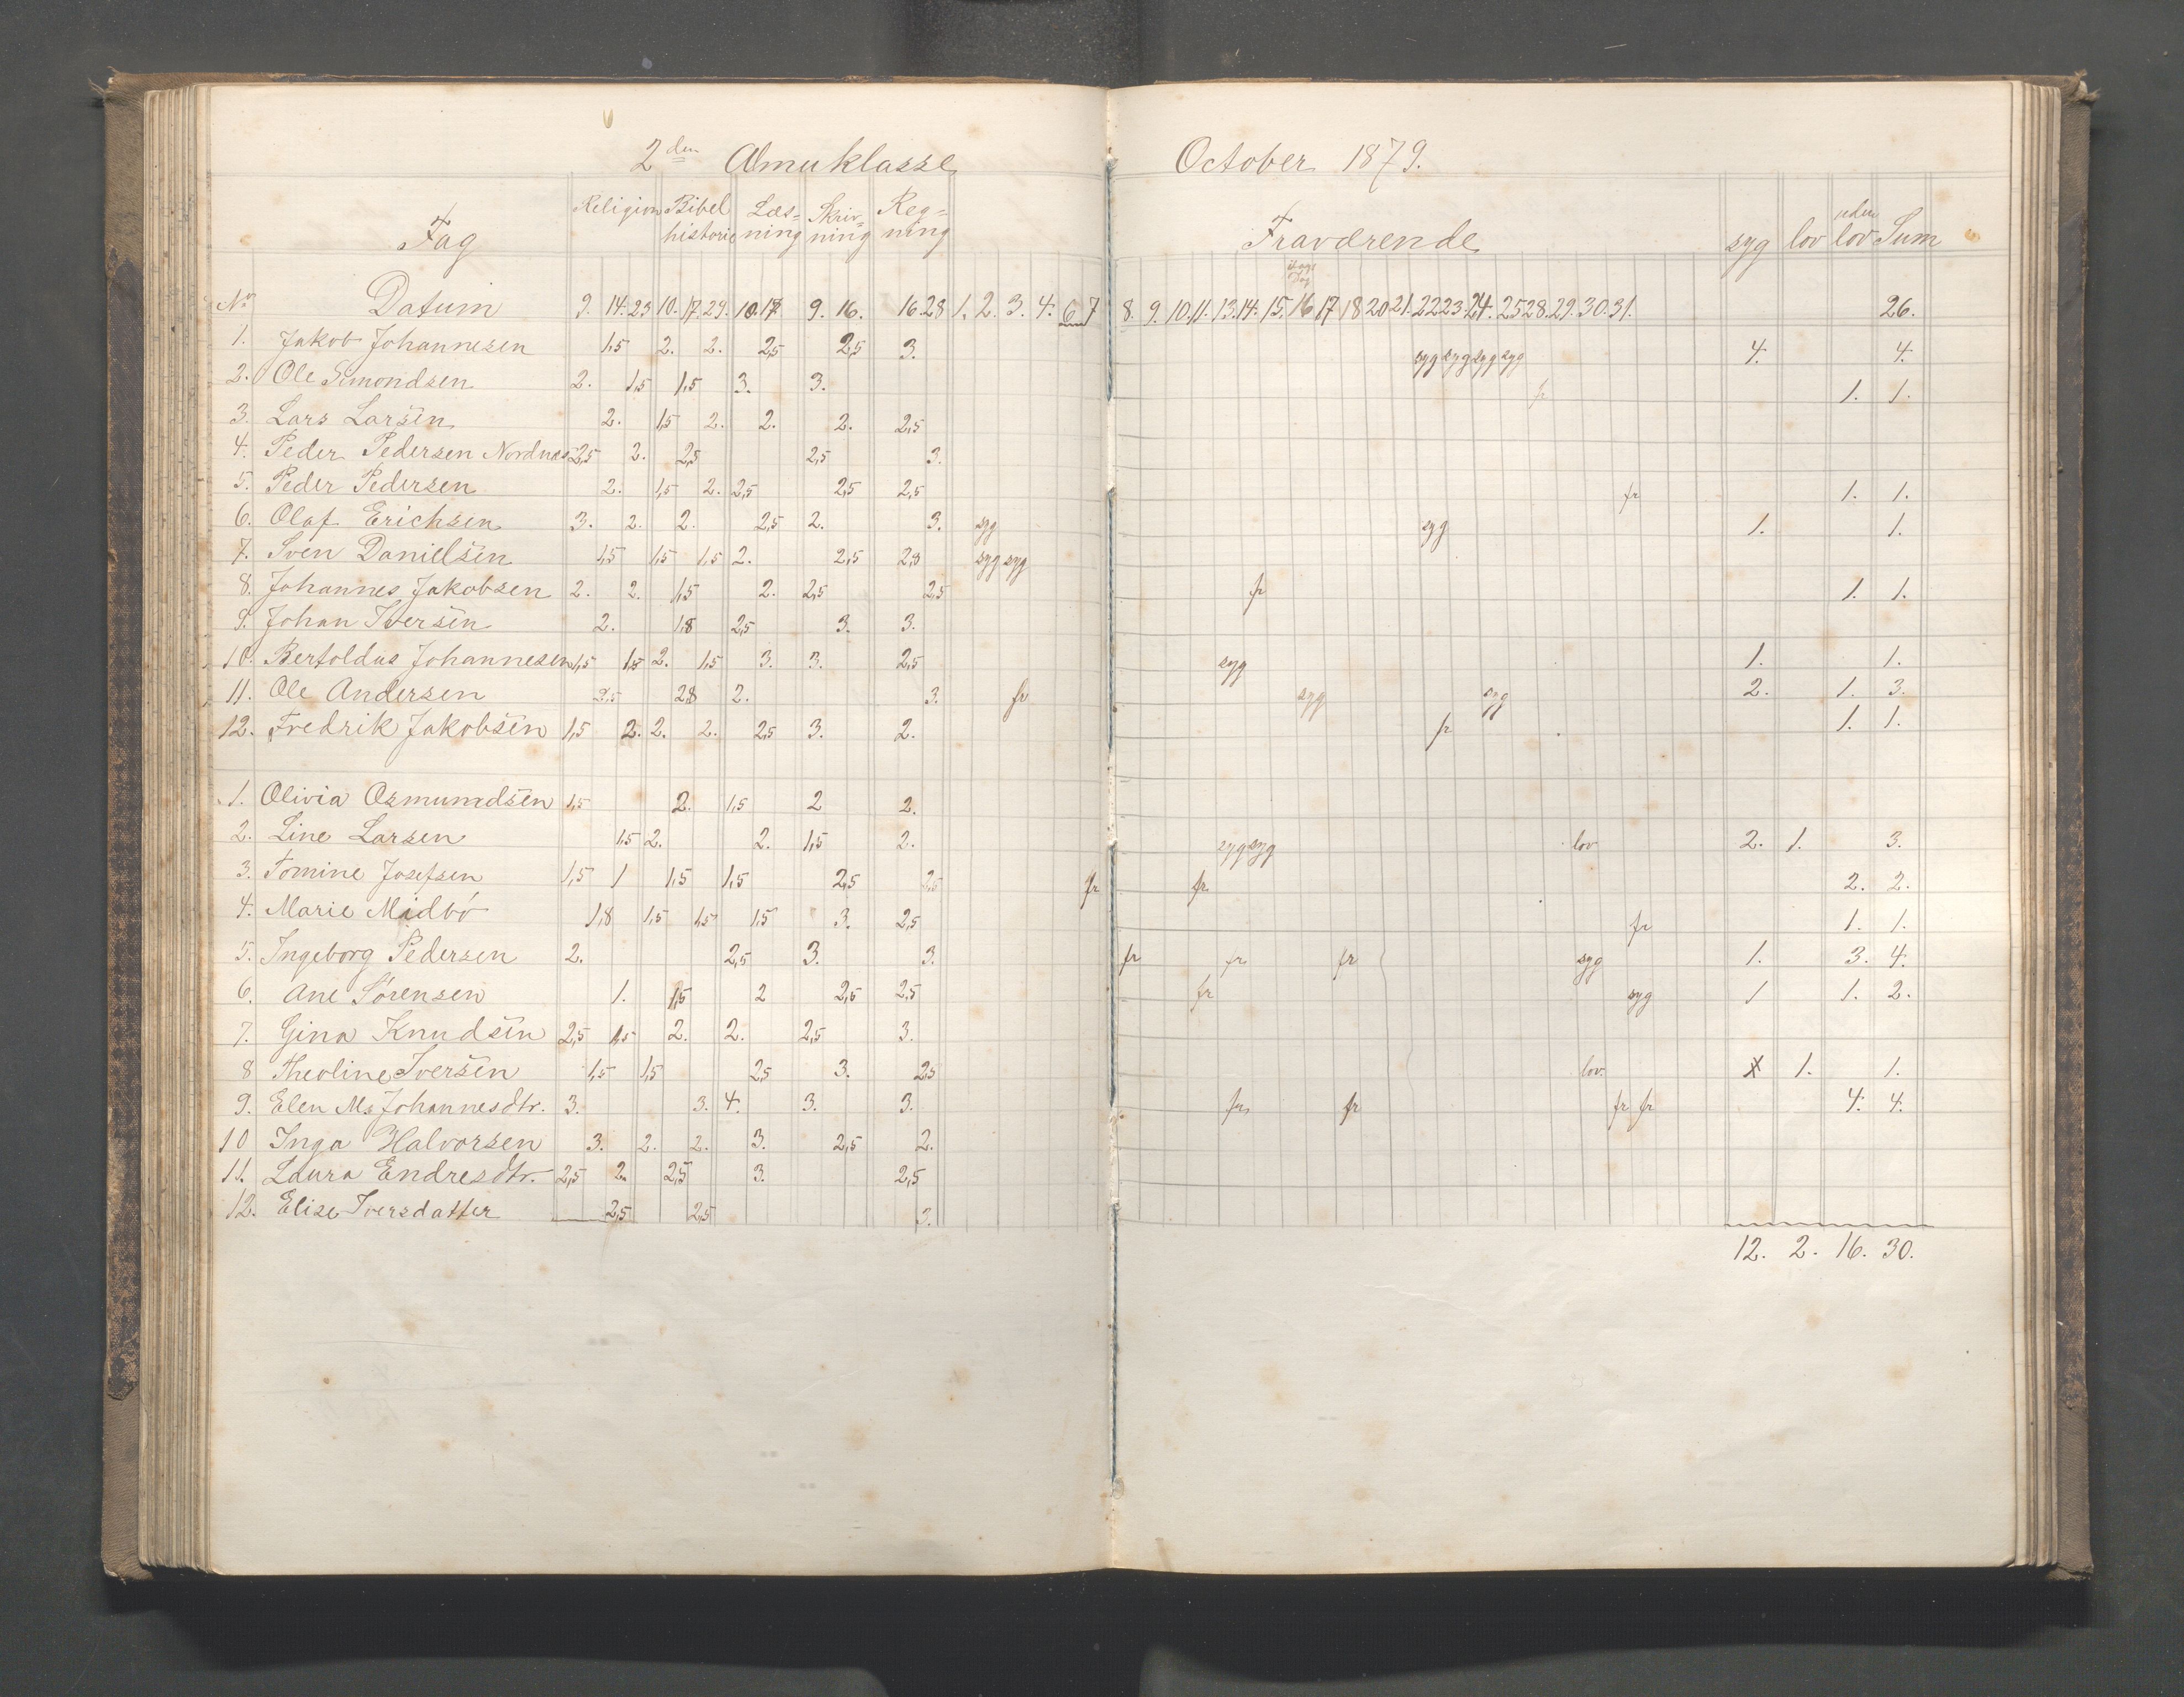 2den Almuklasse October 1879.
Religion Bibel Læs- Skriv- Reg-
Fag historie ning ning ning Fraværende syg lov uden lov Sum
No Datum 9. 14. 23 10. 17. 29. 10. 17. 9. 16. 16. 28 1. 2. 3. 4. 6 7 8. 9. 10. 11. 13. 14. 15. 16 17 18 20 21. 22 23. 24. 25 28. 29. 30. 31. 26.
1. Jakob Johannesen 1,5 2. 2. 2,5 2,5 3. syg syg syg syg 4. 4.
2. Ole Simondsen 2. 1,5 1,5 3. 3. fr 1. 1.
3. Lars Larsen 2. 1,5 2. 2. 2. 2,5
4. Peder Pedersen Nordnæs 2,5 2. 2,5 2,5 3.
5. Peder Pedersen 2. 1,5 2. 2,5 2,5 2,5 fr 1. 1.
6. Olaf Erichsen 3. 2. 2. 2,5 2. 3. syg syg 1. 1.
7. Sven Danielsen 1,5 1,5 1,5 2. 2,5 2,8 syg syg
8. Johannes Jakobsen 2. 2. 1,5 2. 2,5 2,5 fr 1. 1.
9. Johan Iversen 2. 1,8 2,5 3. 3.
10. Bertoldus Johannesen 1,5 1,5 2. 1,5 3. 3. 2,5 syg 1. 1.
11. Ole Andersen 2,5 2,8 2. 3. fr syg syg 2. 1. 3.
12. Fredrik Jakobsen 1,5 2. 2. 2. 2,5 3. 2. fr 1. 1.
1. Olivia Osmundsen 1,5 2. 1,5 2 2.
2. Line Larsen 1,5 2. 2. 1,5 2. syg syg lov 2. 1. 3.
3. Tomine Josefsen 1,5 1 1,5 1,5 2,5 2,5 fr fr 2. 2.
4. Marie Midbö 1,8 1,5 1,5 1,5 3. 2,5 fr 1. 1.
5. Ingeborg Pedersen 2. 2,5 3. 3. fr fr fr syg 1. 3. 4.
6. Ane Sørensen 1. 1,5 2 2,5 2,5 fr syg 1 1. 2.
7. Gina Knudsen 2,5 1,5 2. 2. 2,5 3.
8 Theoline Iversen 1,5 1,5 2,5 3. 2,5 lov. 1. 1.
9. Elen M. Johannesdtr. 3. 3. 4. 3. 3. fr fr fr fr 4. 4.
10 Inga Halvorsen 3. 2. 2. 3. 2,5 2.
11. Laura Endresdtr. 2,5 2. 2,5 3. 2,5
12. Elise Iversdatter 2,5 2,5 3.
12. 2. 16. 30.